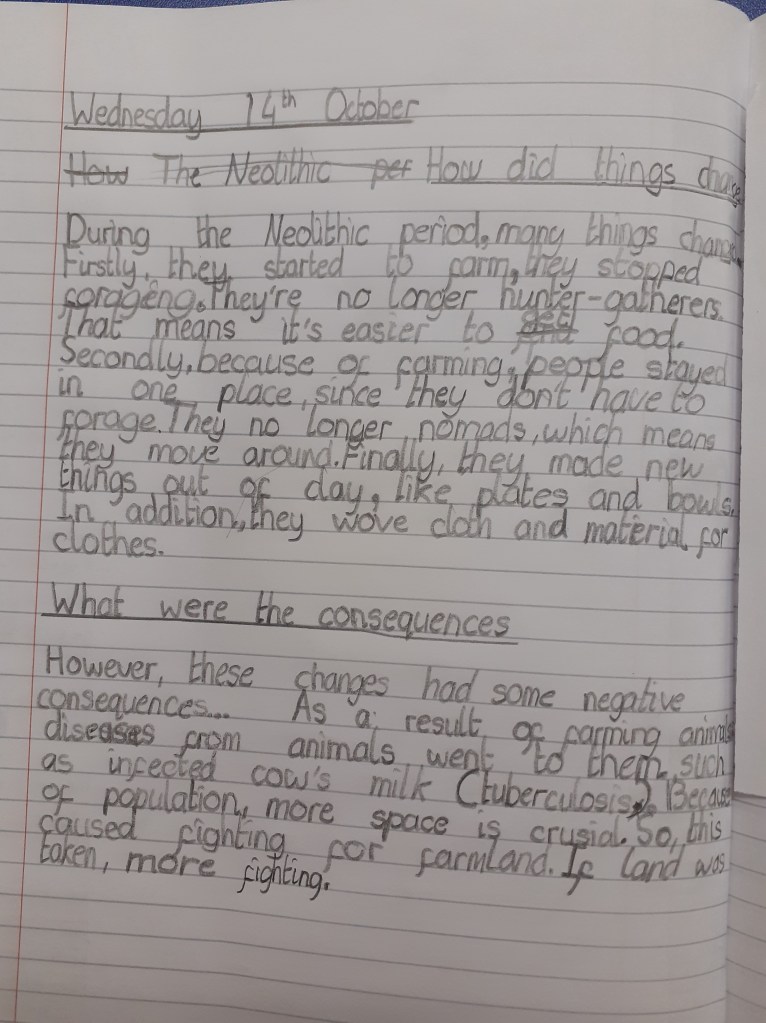 Wednesday 14th October
How The Neolithic per How did things change
During the Neolithic period, many things change.
Firstly, they started to farm, they stopped
forageng. They're no longer hunter-gatherers.
That means it's easier to get food.
Secondly, because of farming, people stayed
in one place, since they don't have to
forage. They no longer nomads, which means
they move around. Finally, they made new
things out of clay, like plates and bowls.
In addition, they wove cloth and material for
clothes.
What were the consequences
However, these changes had some negative
consequences... As a result of farming animals
diseases from animals went to them, such
as infected cow's milk (tuberculosis). Because
of population, more space is crusial. So, this
caused fighting for farmland. If land was
taken, more fighting.